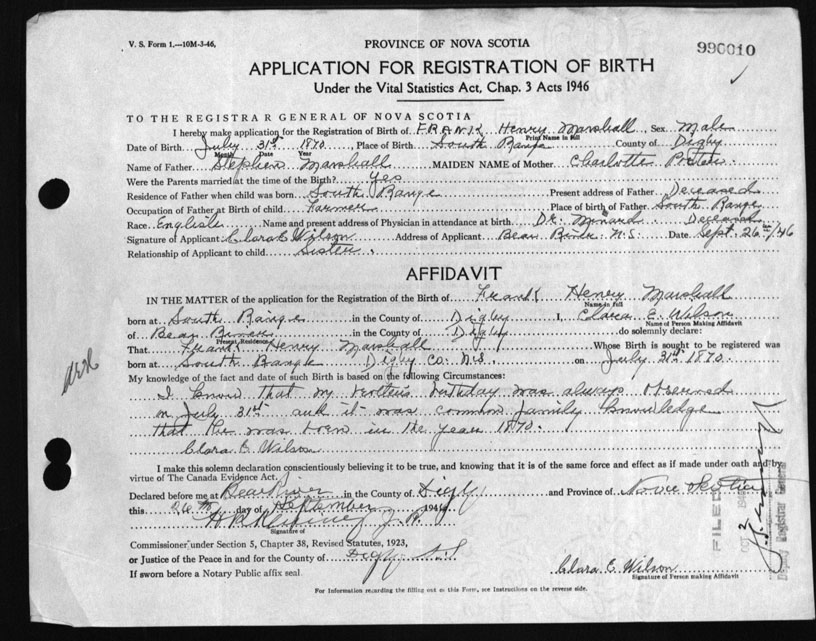 V. S. Form 1.—10M-3-46,
990010
PROVINCE OF NOVA SCOTIA
APPLICATION FOR REGISTRATION OF BIRTH
Under the Vital Statistics Act, Chap. 3 Acts 1946
TO THE REGISTRAR GENERAL OF NOVA SCOTIA
I hereby make application for the Registration of Birth of FRANK Henry Marshall, Sex Male
Print Name in full
Date of Birth July 31st 1870 Place of Birth South Range County of Digby
Month Date Year
Name of Father Stephen Marshall MAIDEN NAME of Mother Charlotte
Were the Parents married at the time of the Birth? Yes
Residence of Father when child was born South Range Present address of Father Deceased
Occupation of Father at Birth of child Farmer Place of birth of Father South Range
Race English Name and present address of Physician in attendance at birth Dr. Deceased
Signature of Applicant Clara E Wilson Address of Applicant Bear River N.S. Date Sept. 26th/46
Relationship of Applicant to child Sister.
AFFIDAVIT
IN THE MATTER of the application for the Registration of the Birth of Frank Henry Marshall
Name in full
born at South Range in the County of Digby I, Clara E. Wilson
Name of Person Making Affidavit
of Bear River in the County of Digby do solemnly declare:
Present Residence
That Frank Henry Marshall Whose Birth is sought to be registered was
born at South Range Digby Co. N.S. on July 31st 1870.
My knowledge of the fact and date of such Birth is based on the following Circumstances:
I know that my brothers birthday was always observed
on July 31st and it was common family knowledge
that he was born in the year 1870.
Clara E Wilson
I make this solemn declaration conscientiously believing it to be true, and knowing that it is of the same force and effect as if made under oath and by
virtue of The Canada Evidence Act.
Declared before me at Bear River in the County of Digby and Province of Nova Scotia
this 26th day of September 1946
J.P.
Signature of
Commissioner under Section 5, Chapter 38, Revised Statutes, 1923,
or Justice of the Peace in and for the County of Digby N.S
If sworn before a Notary Public affix seal.
Clara E Wilson
Signature of Person making Affidavit
For Information regarding the filling out of this Form, see Instructions on the reverse side.
FILED
Deputy Registrar General